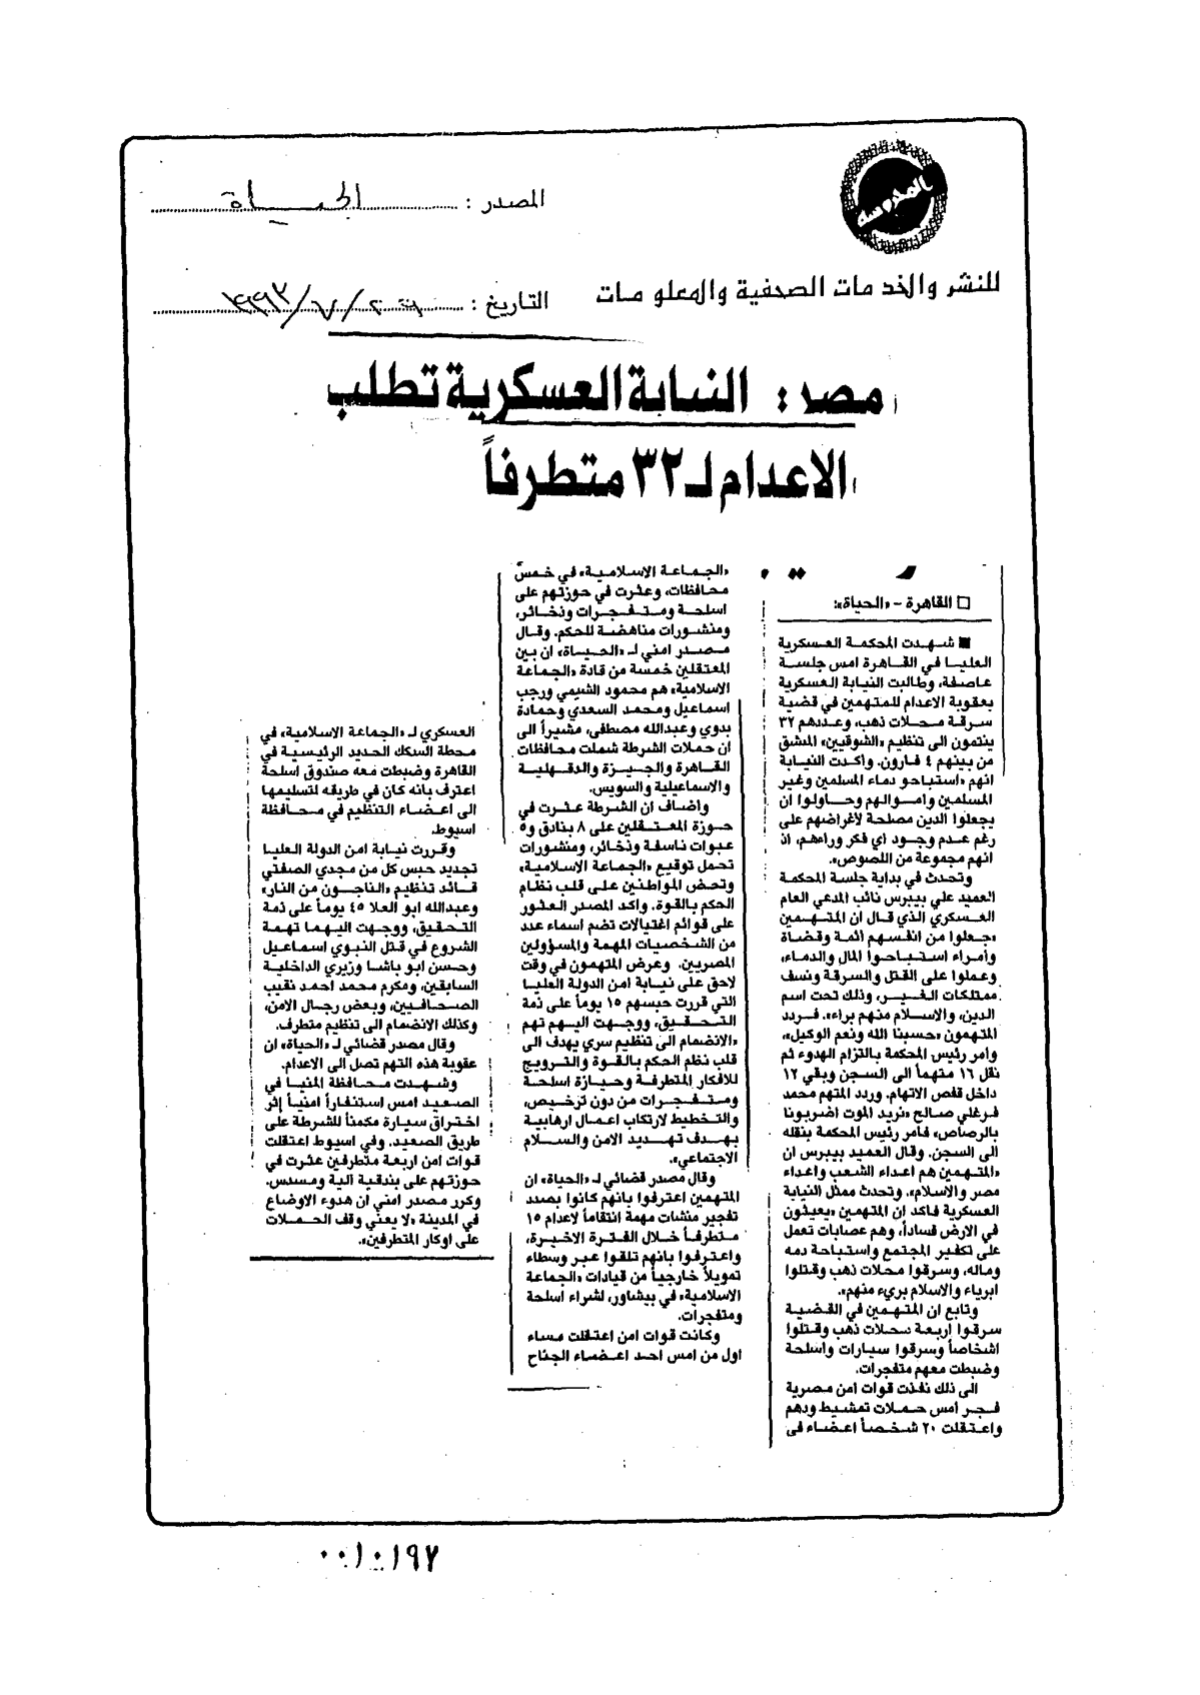 المدروسة
المصدر : الحيـــاة
للنشر والخدمات الصحفية والمعلومات
التاريخ :
مصر : النيابة العسكرية تطلب
الاعدام لـ٣٢ متطرفاً
□ القاهرة – «الحياة»:
■ شهدت المحكمة العسكرية
العليا في القاهرة امس جلسة
عاصفة، وطالبت النيابة العسكرية
بعقوبة الاعدام للمتهمين في قضية
سرقة محلات ذهب، وعددهم ٣٢
ينتمون الى تنظيم «الشوقيين» المنشق
من بينهم ٤ فارون. واكدت النيابة
انهم «استباحو دماء المسلمين وغير
المسلمين وامـوالهم وحـاولوا ان
يجعلوا الدين مصلحة لأغراضهم على
رغم عدم وجود اي فكر وراءهم، اذ
انهم مجموعة من اللصوص».
وتحدث في بداية جلسة المحكمة
العميد علي بيبرس نائب المدعي العام
العسكري الذي قال ان المتهمين
«جعلوا من انفسهم ائمة وقضاة
وأمراء استباحوا المال والدماء،
وعملوا على القتل والسرقة ونسف
ممتلكات الغير، وذلك تحت اسم
الدين، والاسلام منهم براء». فردد
المتهمون «حسبنا الله ونعم الوكيل»،
وامر رئيس المحكمة بالتزام الهدوء ثم
نقل ١٦ متهماً الى السجن وبقي ١٢
داخل قفص الاتهام. وردد المتهم محمد
فرغلي صالح «نريد الموت اضربونا
بالرصاص» فامر رئيس المحكمة بنقله
الى السجن. وقال العميد بيبرس ان
«المتهمين هم اعداء الشعب واعداء
مصر والاسلام». وتحدث ممثل النيابة
العسكرية فاكد ان المتهمين «يعيثون
في الارض فساداً، وهم عصابات تعمل
على تكفير المجتمع واستباحة دمه
وماله، وسرقوا محلات ذهب وقتلوا
ابرياء والاسلام بريء منهم».
وتابع ان المتهمين في القضية
سرقوا اربعة محلات ذهب وقتلوا
اشخاصاً وسرقوا سيارات واسلحة
وضبطت معهم متفجرات.
الى ذلك نفذت قوات امن مصرية
فجر امس حملات تمشيط ودهم
واعتقلت ٢٠ شخصاً اعضاء في
«الجماعة الاسلامية» في خمس
محافظات، وعثرت في حوزتهم على
اسلحة ومتفجرات وذخائر،
ومنشورات مناهضة للحكم. وقال
مصدر امني لـ «الحياة» ان بين
المعتقلين خمسة من قادة «الجماعة
الاسلامية» هم محمود الشيمي ورجب
اسماعيل ومحمد السعدي وحمادة
بدوي وعبدالله مصطفى، مشيراً الى
ان حملات الشرطة شملت محافظات
القاهرة والجيزة والدقهلية
والاسماعيلية والسويس.
واضاف ان الشرطة عثرت في
حوزة المعتقلين على ٨ بنادق و٥
عبوات ناسفة وذخائر، ومنشورات
تحمل توقيع «الجماعة الاسلامية»
وتحض المواطنين على قلب نظام
الحكم بالقوة. واكد المصدر العثور
على قوائم اغتيالات تضم اسماء عدد
من الشخصيات المهمة والمسؤولين
المصريين. وعرض المتهمون في وقت
لاحق على نيابة امن الدولة العليا
التي قررت حبسهم ١٥ يوماً على ذمة
التحقيق، ووجهت اليهم تهم
«الانضمام الى تنظيم سري يهدف الى
قلب نظم الحكم بالقوة والترويج
للافكار المتطرفة وحيازة اسلحة
ومتفجرات من دون ترخيص،
والتخطيط لارتكاب اعمال ارهابية
بهدف تهديد الامن والسلام
الاجتماعي».
وقال مصدر قضائي لـ «الحياة» ان
المتهمين اعترفوا بانهم كانوا بصدد
تفجير منشات مهمة انتقاماً لاعدام ١٥
متطرفاً خلال الفترة الاخيرة،
واعترفوا بانهم تلقوا عبر وسطاء
تمويلاً خارجياً من قيادات «الجماعة
الاسلامية» في بيشاور، لشراء اسلحة
ومتفجرات.
وكانت قوات امن اعتقلت مساء
اول من امس احد اعضاء الجناح
العسكري لـ «الجماعة الاسلامية» في
محطة السكك الحديد الرئيسية في
القاهرة وضبطت معه صندوق اسلحة
اعترف بانه كان في طريقه لتسليمها
الى اعضاء التنظيم في محافظة
اسيوط.
وقررت نيابة امن الدولة العليا
تجديد حبس كل من مجدي الصفتي
قائد تنظيم «الناجون من النار»
وعبدالله ابو العلا ٤٥ يوماً على ذمة
التحقيق، ووجهت اليهما تهمة
الشروع في قتل النبوي اسماعيل
وحسن ابو باشا وزيري الداخلية
السابقين، ومكرم محمد احمد نقيب
الصحافيين، وبعض رجال الامن،
وكذلك الانضمام الى تنظيم متطرف.
وقال مصدر قضائي لـ «الحياة» ان
عقوبة هذه التهم تصل الى الاعدام.
وشهدت محافظة المنيا في
الصعيد امس استنفاراً امنياً إثر
اختراق سيارة مكمناً للشرطة على
طريق الصعيد. وفي اسيوط اعتقلت
قوات امن اربعة متطرفين عثرت في
حوزتهم على بندقية الية ومسدس.
وكرر مصدر امني ان هدوء الاوضاع
في المدينة «لا يعني وقف الحملات
على اوكار المتطرفين».